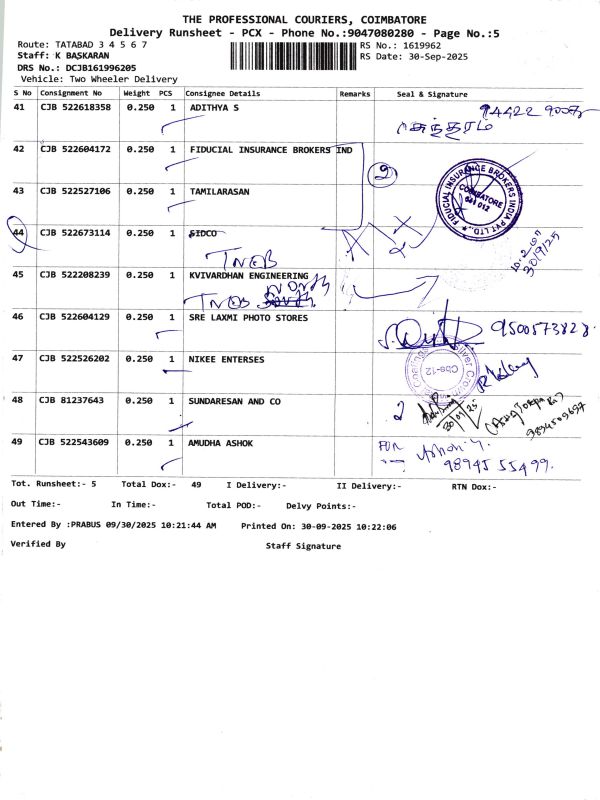 THE PROFESSIONAL COURIERS, COIMBATORE
Delivery Runsheet - PCX - Phone No.:9047080280 - Page No.:5
Route: TATABAD 3 4 5 6 7
RS No.: 1619962
Staff: K BASKARAN
RS Date: 30-Sep-2025
DRS No.: DCJB161996205
Vehicle: Two Wheeler Delivery
S No Consignment No Weight PCS Consignee Details Remarks Seal & Signature
41 CJB 522618358 0.250 1 ADITHYA S
42 CJB 522604172 0.250 1 FIDUCIAL INSURANCE BROKERS IND
2
FIDUCIAL INSURANCE BROKERS INDIA PVT LTD.,
COIMBATORE
641 012
43 CJB 522527106 0.250 1 TAMILARASAN
44 CJB 522673114 0.250 1 SIDCO
TNEB
30/9/25
45 CJB 522208239 0.250 1 KVIVARDHAN ENGINEERING
TNEB South North
46 CJB 522604129 0.250 1 SRE LAXMI PHOTO STORES
9500573828
47 CJB 522526202 0.250 1 NIKEE ENTERSES
Cbe-12
48 CJB 81237643 0.250 1 SUNDARESAN AND CO
2
9894509697
49 CJB 522543609 0.250 1 AMUDHA ASHOK
FOR Ashok
98945 55499.
Tot. Runsheet:- 5 Total Dox:- 49 I Delivery:- II Delivery:- RTN Dox:-
Out Time:- In Time:- Total POD:- Delvy Points:-
Entered By :PRABUS 09/30/2025 10:21:44 AM Printed On: 30-09-2025 10:22:06
Verified By Staff Signature